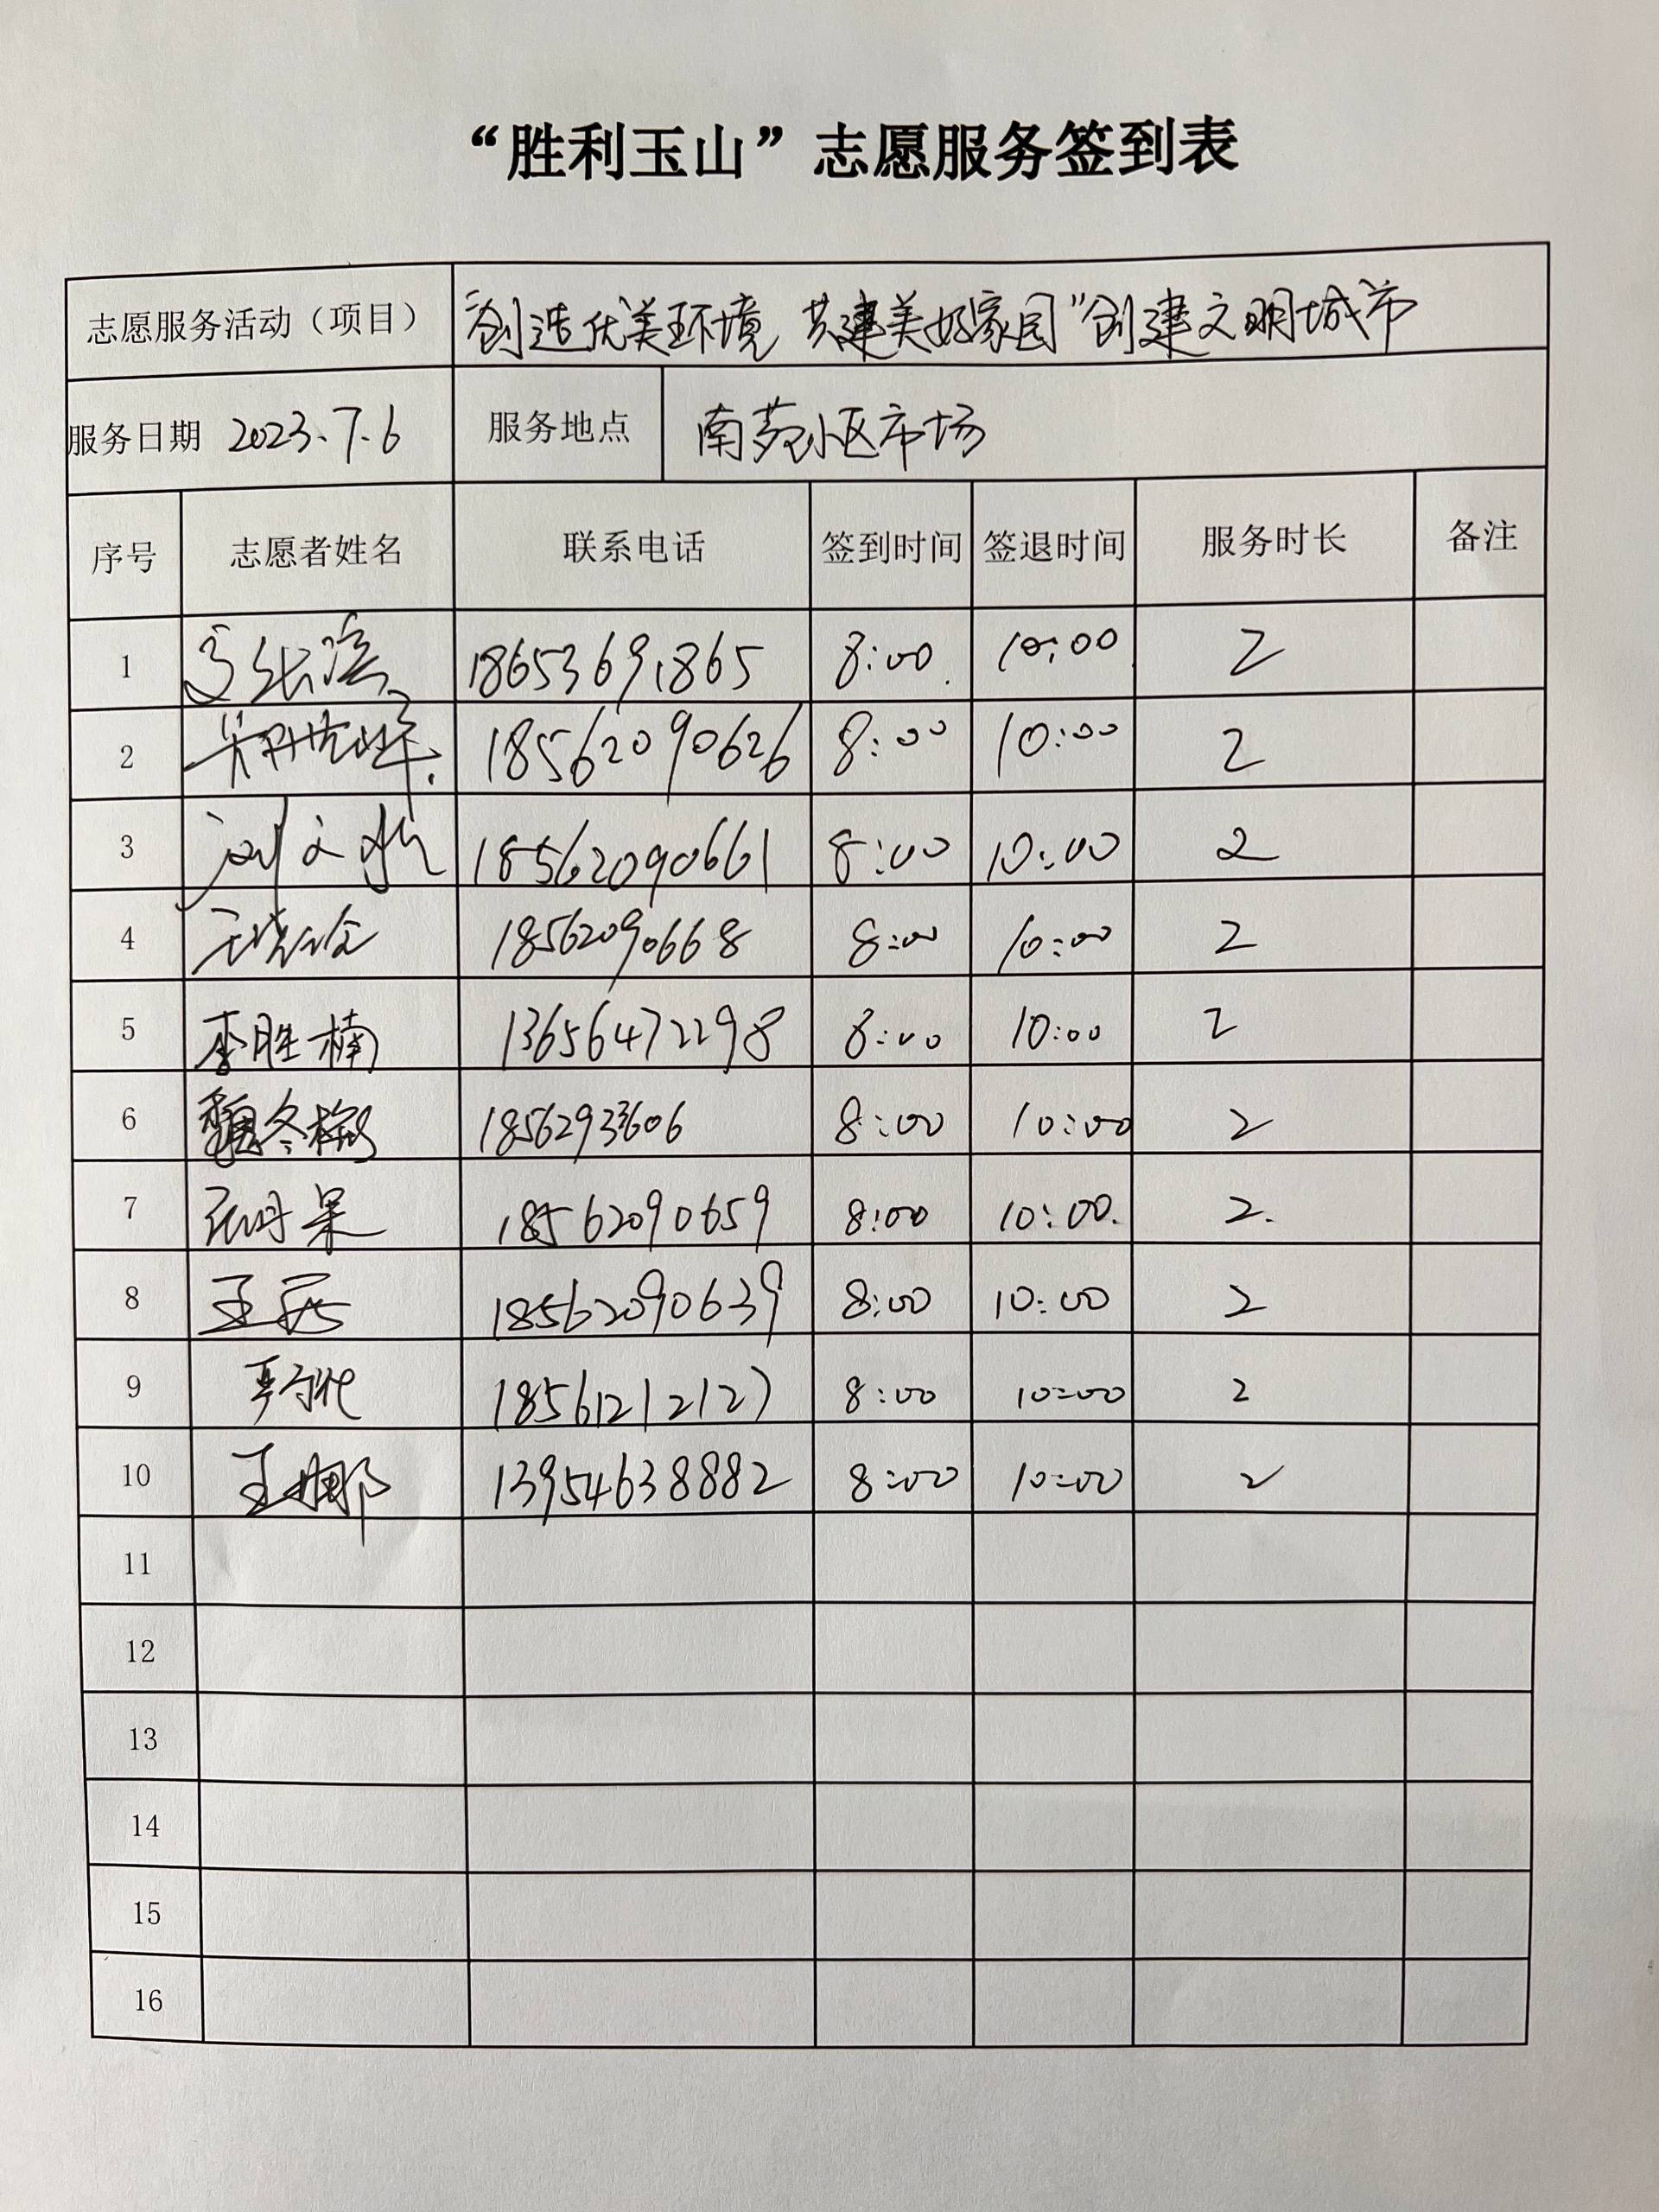 “胜利玉山”志愿服务签到表
志愿服务活动（项目） “创造优美环境 共建美好家园”创建文明城市
服务日期 2023.7.6 服务地点 南苑小区市场
序号 志愿者姓名 联系电话 签到时间 签退时间 服务时长 备注
1 18653691865 8:00 10:00 2
2 18562090626 8:00 10:00 2
3 刘文 18562090661 8:00 10:00 2
4 18562090668 8:00 10:00 2
5 李胜楠 13656472298 8:00 10:00 2
6 魏冬梅 8:00 10:00 2
7 18562090659 8:00 10:00. 2.
8 王 18562090639 8:00 10:00 2
9 18561212127 8:00 10:00 2
10 王娜 13954638882 8:00 10:00 2
11
12
13
14
15
16